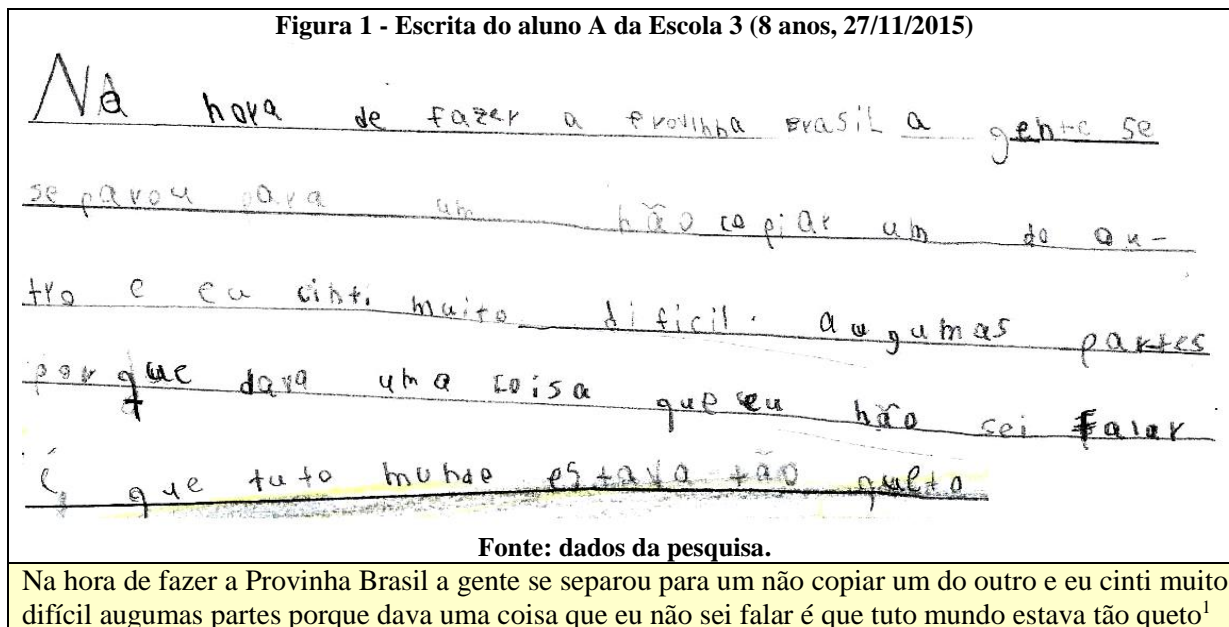 Figura 1 - Escrita do aluno A da Escola 3 (8 anos, 27/11/2015)
Na hora de fazer a Provinha Brasil a gente se
separou para um não copiar um do ou-
tro e eu cinti muito dificil. augumas partes
porque dava uma coisa que eu não sei falar
É que tuto mundo estava tão queto
Fonte: dados da pesquisa.
Na hora de fazer a Provinha Brasil a gente se separou para um não copiar um do outro e eu cinti muito
difícil augumas partes porque dava uma coisa que eu não sei falar é que tuto mundo estava tão queto¹